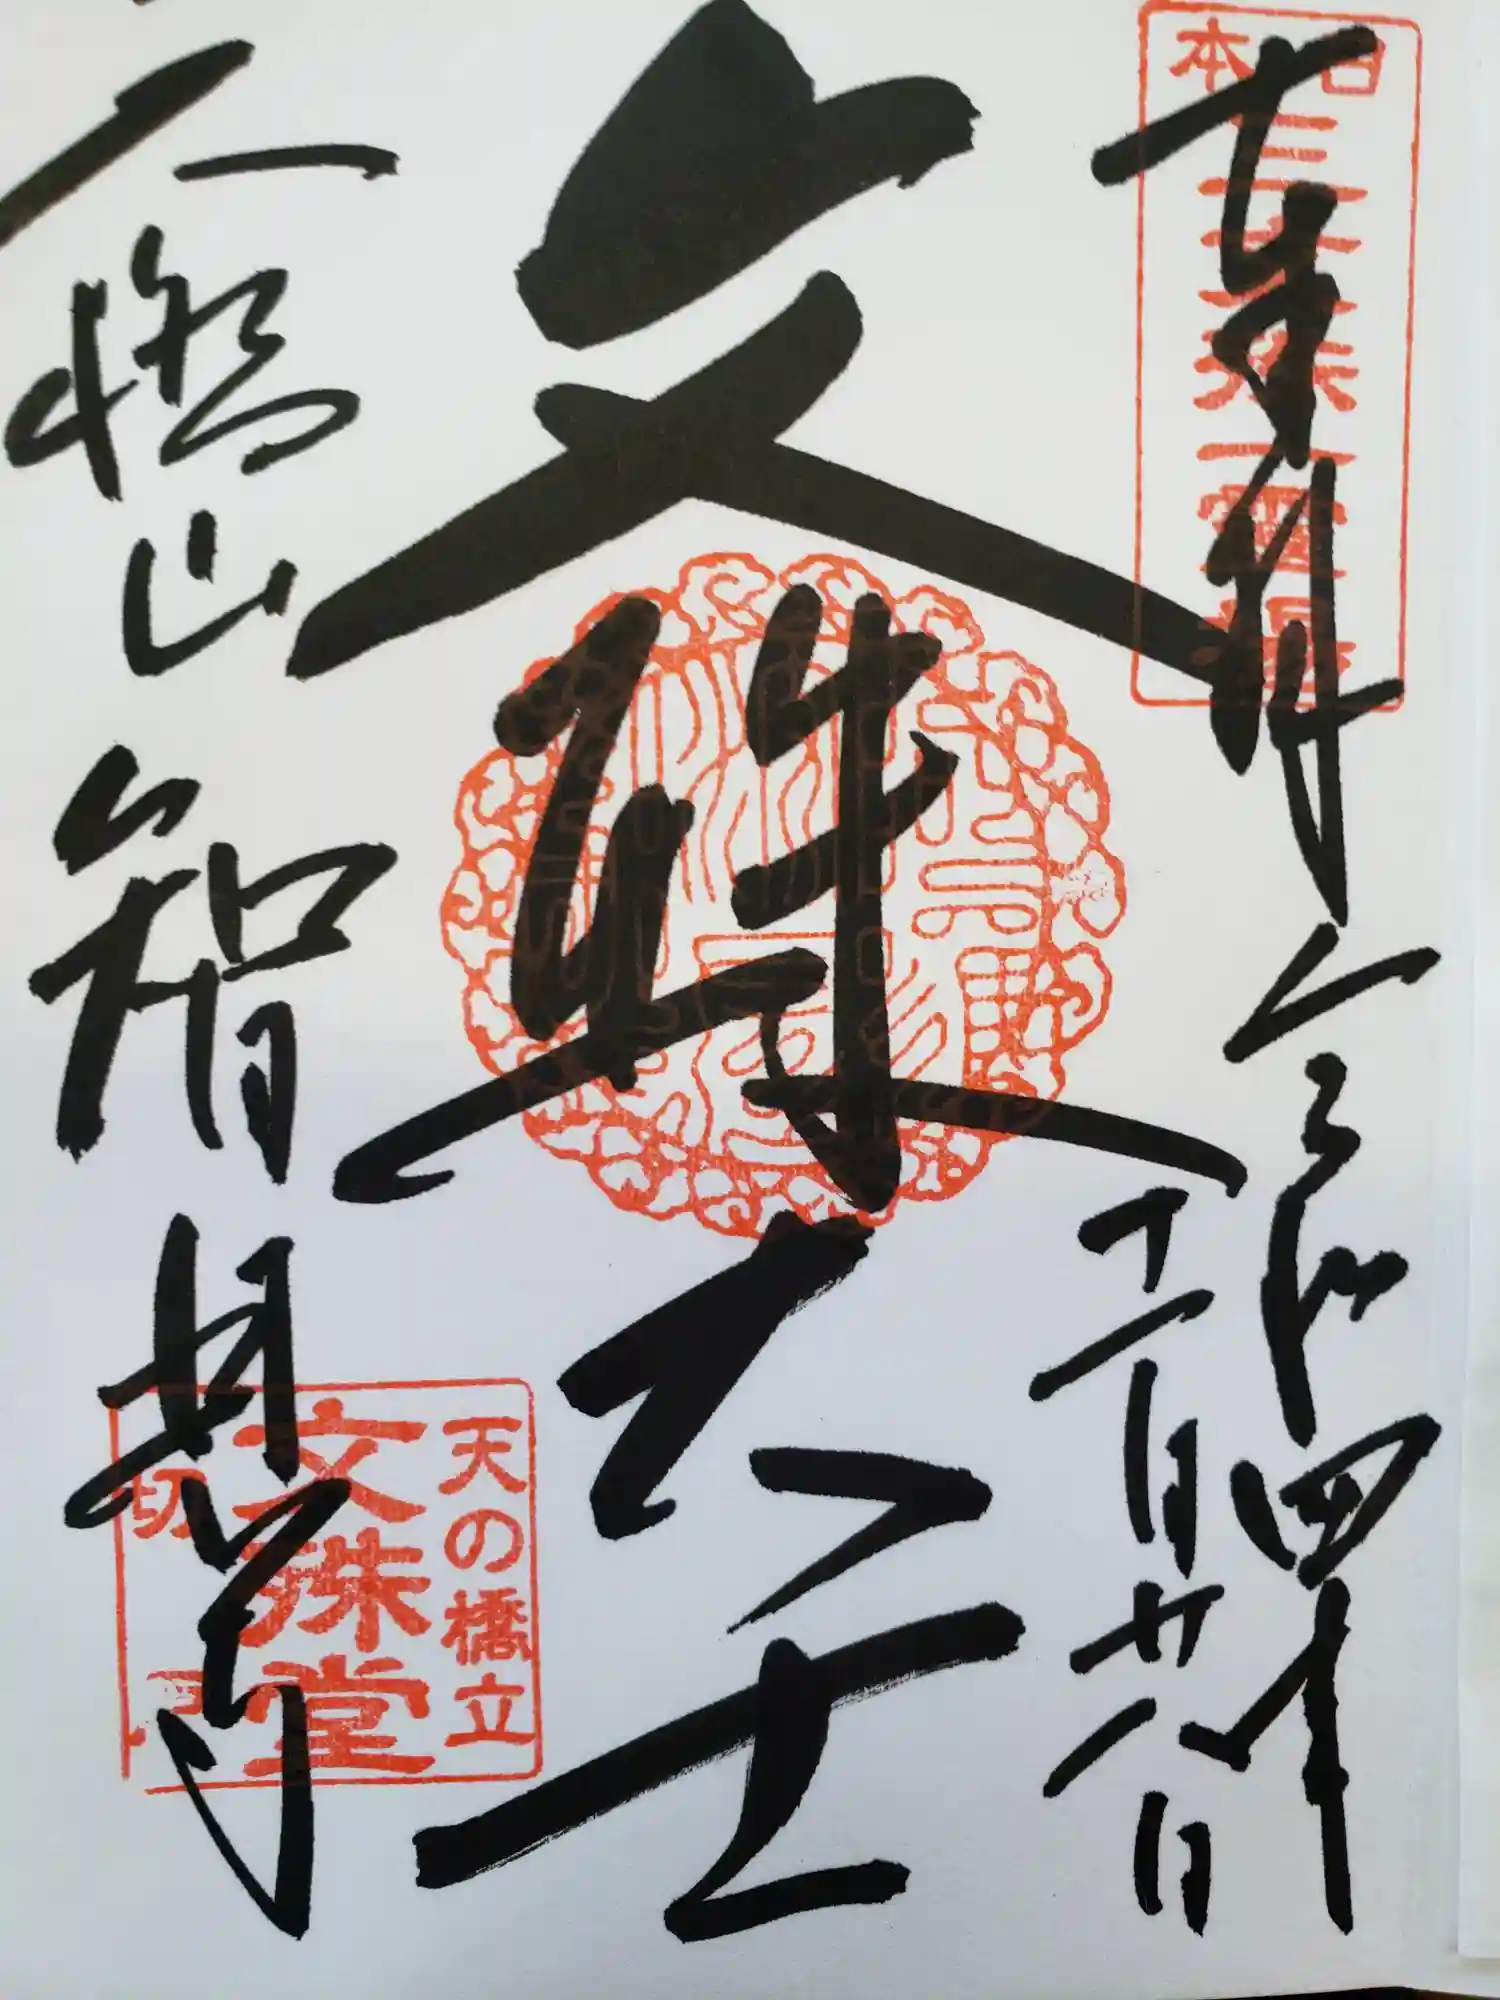 奉拝
令和四年
十一月廿八日
日本三文殊第一霊場
文殊大士
天橋山 智恩寺
天の橋立
文殊堂
切